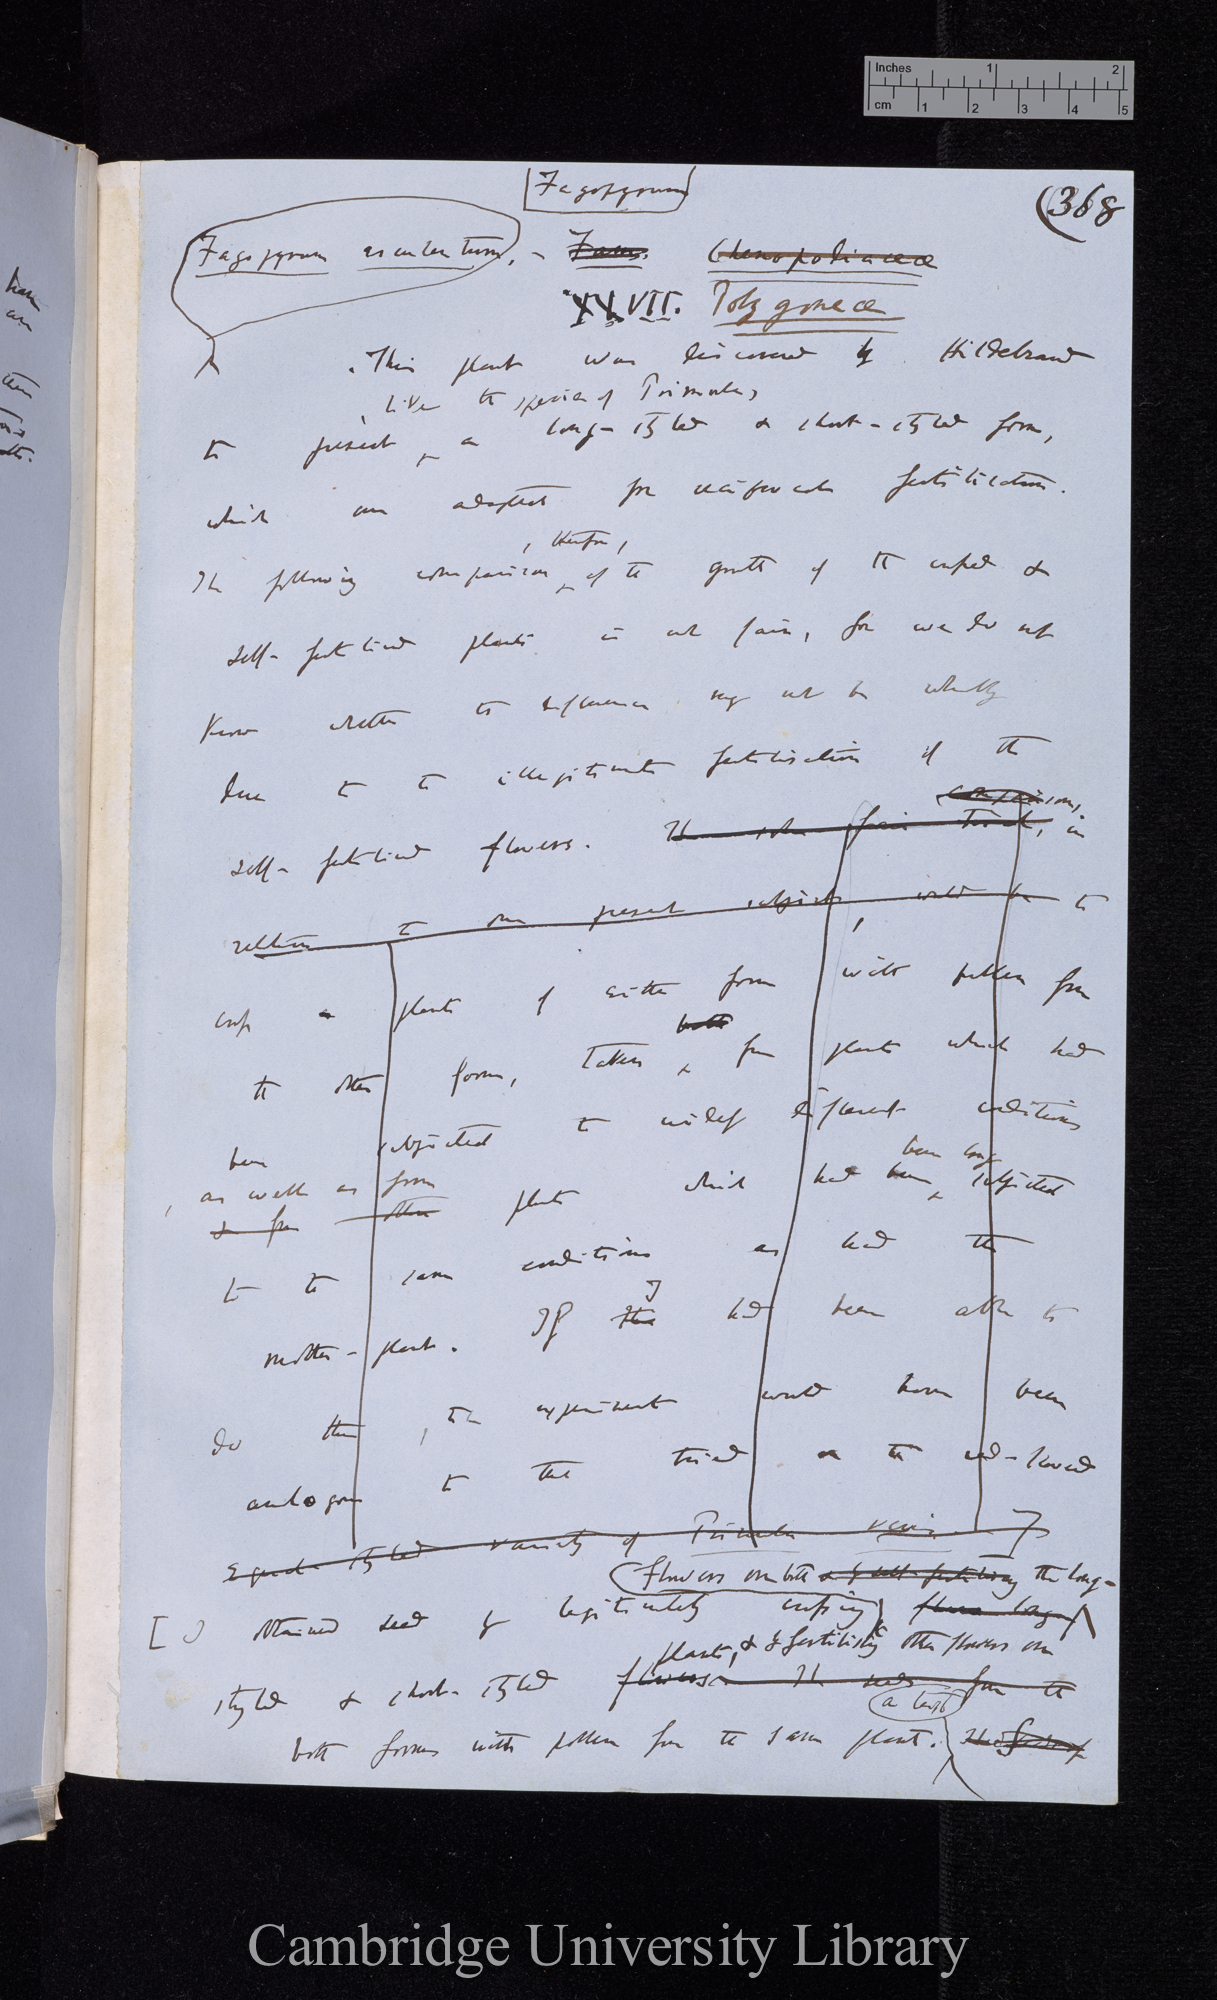 Inches 1 2
cm 1 2 3 4 5
Fagopyrum
(368
Fagopyrum esculentum. – Chenopodiaceæ
XXVII. Polygoneæ
This plant was discovered by Hildebrand
, like the species of Primula,
to present a long-styled & short-styled form,
which are adapted for reciprocal fertilisation.
, therefore,
The following comparison of the growth of the crossed &
self-fertilised plants is not fair, for we do not
know whether the difference may not be wholly
due to the illegitimate fertilisation of the
comparison,
self-fertilised flowers. The fair trial, in
relation to our present subject, would be to
cross plants of either form with pollen from
both
the other form, taken from plants which had
been subjected to widely different conditions
been long
, as well as from
& from other plants which had been subjected
to the same conditions as had the
I
mother-plant. If had been able to
do this, the experiment would have been
analogous to that tried on the red-flowered
equal-styled variety of Primula veris
Flowers on both & by self-fertilising the long-
[ I obtained seed by legitimately crossing
plants, & by fertilising other flowers on
styled & short-styled flowers. The from the
a test
both forms with pollen from the same plant.
Cambridge University Library